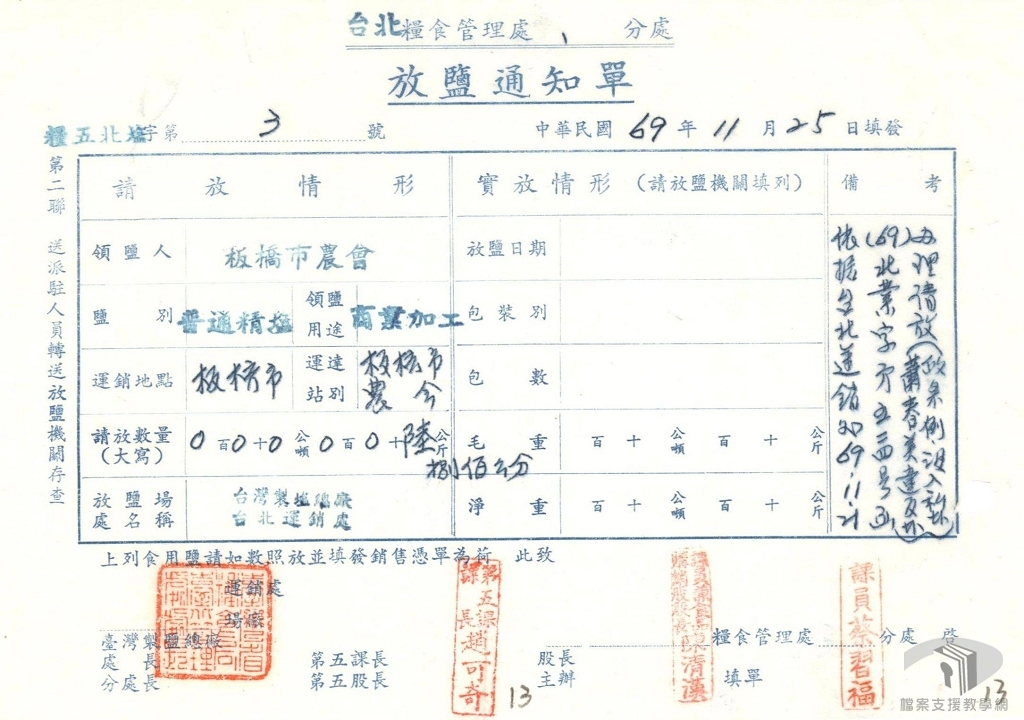 台北糧食管理處、 分處
放鹽通知單
糧五北塩字第 3 號
中華民國 69 年 11 月 25 日填發
第二聯 送派駐人員轉送放鹽機關存查
請放情形
實放情形(請放鹽機關填列)
備考
領鹽人 板橋市農會
放鹽日期
鹽別 普通精塩 領鹽用途 商業加工
包裝別
運銷地點 板橋市 運達站別 板橋市農會
包數
請放數量(大寫) 0百0十0公噸0百0十陸公斤
捌佰公分
毛重 百 十 公噸 百 十 公斤
放鹽場處名稱 台灣製塩總廠
台北運銷處
淨重 百 十 公噸 百 十 公斤
依据台北運銷処69.11.21
(69)北業字第五三四号函
办理請放(蕭春美違反
政条例没入私塩)
上列食用鹽請如數照放並填發銷售憑單為荷 此致
臺灣製鹽總廠
運銷處
場廠
糧食管理處 分處 啓
處長
分處長
第五課長
第五股長
第五課課長趙可奇
13
股長
主辦
陳清漢
填單
課員蔡習福
13
檔案支援教學網